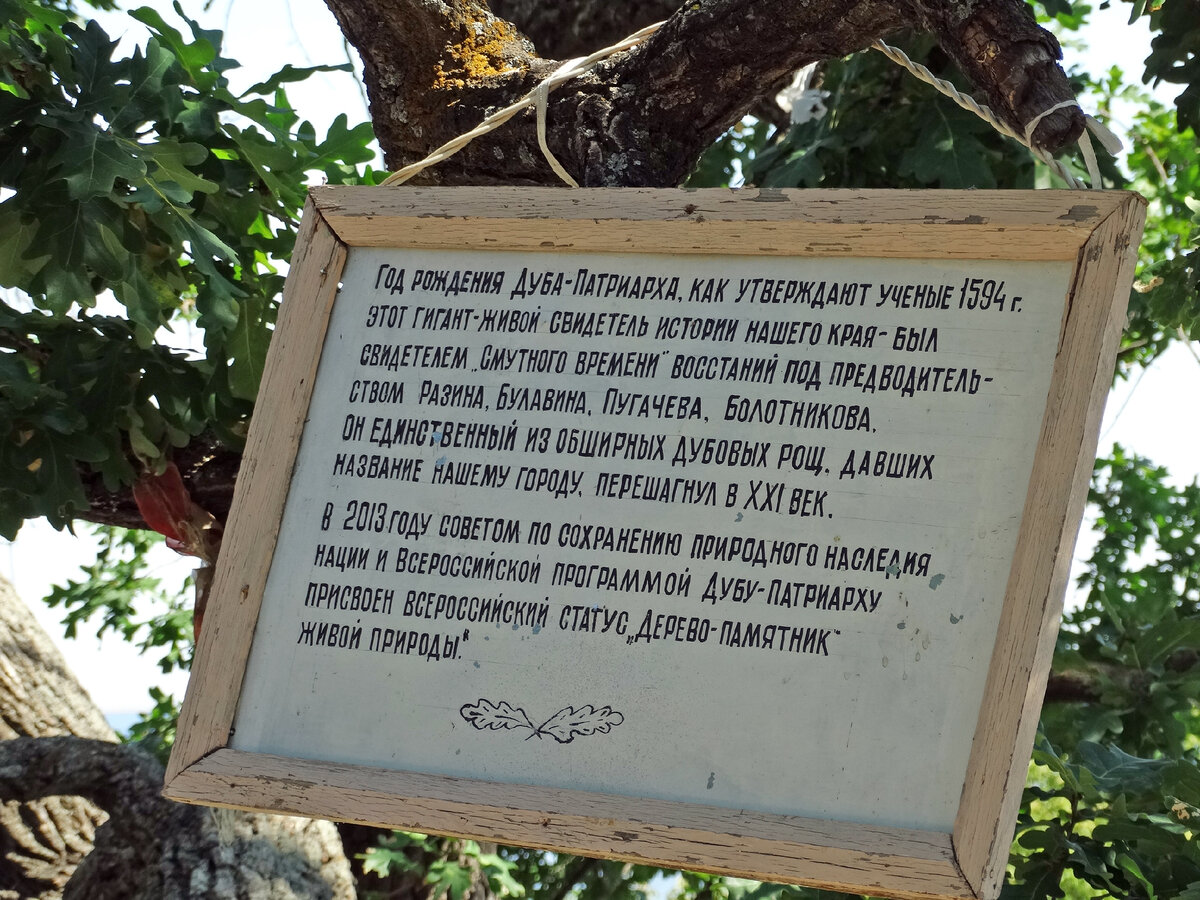 Год рождения Дуба-Патриарха, как утверждают ученые 1594 г.
этот гигант-живой свидетель истории нашего края- был
свидетелем „Смутного времени" восстаний под предводитель-
ством Разина, Булавина, Пугачева, Болотникова.
Он единственный из обширных дубовых рощ, давших
название нашему городу, перешагнул в XXI век.
в 2013 году советом по сохранению природного наследия
нации и Всероссийской программой Дубу-Патриарху
присвоен всероссийский статус „Дерево-памятник"
живой природы."